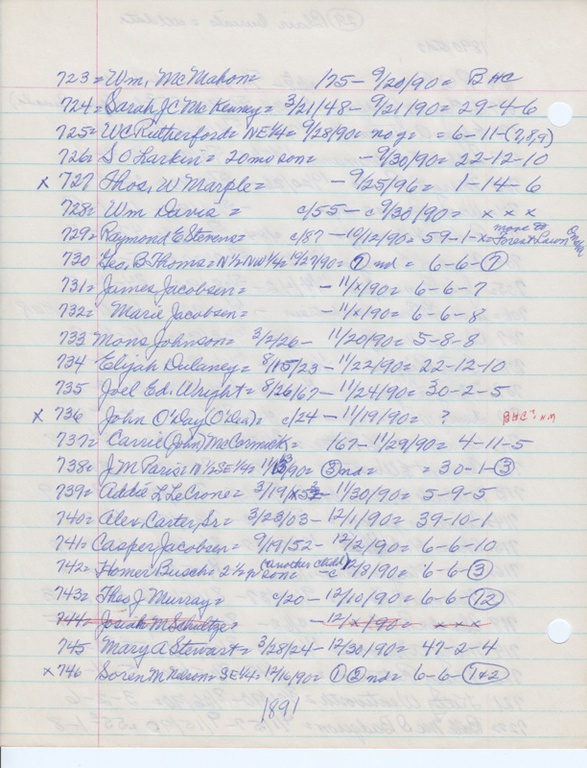 723 = Wm, McMahon = /75 - 9/20/90 = BHC
724 = Sarah J C McKenney = 3/21/48 - 9/21/90 = 29-4-6
725 = WC Rutherford = NE 1/4 = 9/28/90 = no g. = 6-11-(7,8,9)
726 = S O Larkin = 20 mo son = - 9/30/90 = 22-12-10
x 727 Thos, W Marple = - 9/25/96 = 1-14-6
728 = Wm Davis = c/55 - c 9/30/90 = x x x
729 = Raymond E Stevens = c/87 - 10/12/90 = 59-1-x = move to Forest Lawn
730 Geo, B Thoms = N 1/2 NW 1/4 = 10/27/90 = ① nd = 6-6-①
731 = James Jacobsen = - 11/x/90 = 6-6-7
732 = Marie Jacobsen = - 11/x/90 = 6-6-8
733 Mons Johnson = 3/2/26 - 11/20/90 = 5-8-8
734 Elijah Dulaney = 8/15/23 - 11/22/90 = 22-12-10
735 Joel Ed. Wright = 8/26/67 - 11/24/90 = 30-2-5
x 736 John O'Day (O'Dea) = c/24 - 11/19/90 = ? BHC?
737 = Carrie (John) McCormick = /67 - 11/29/90 = 4-11-5
738 = J M Paris = N 1/2 SE 1/4 = ③ nd = = 30-1-③
739 = Addie L LeCrone = 3/19/52 - 11/30/90 = 5-9-5
740 = Alex, Carter, Sr = 3/23/03 - 12/1/90 = 39-10-1
741 = Casper Jacobsen = 9/19/52 - 12/2/90 = 6-6-10
742 = Homer Busch = 2 1/2 yr son (another child) - c 12/8/90 = 6-6-③
743 = Thos J Murray = c/20 - 12/10/90 = 6-6-⑫
744 = Josiah M Schultze = - 12/x/90 = x x x
745 Mary A Stewart = 3/28/24 - 12/30/90 = 47-2-4
x 746 Soren M = SE 1/4 = 12/16/90 = ① ② nd = 6-6-(1&2)
1891